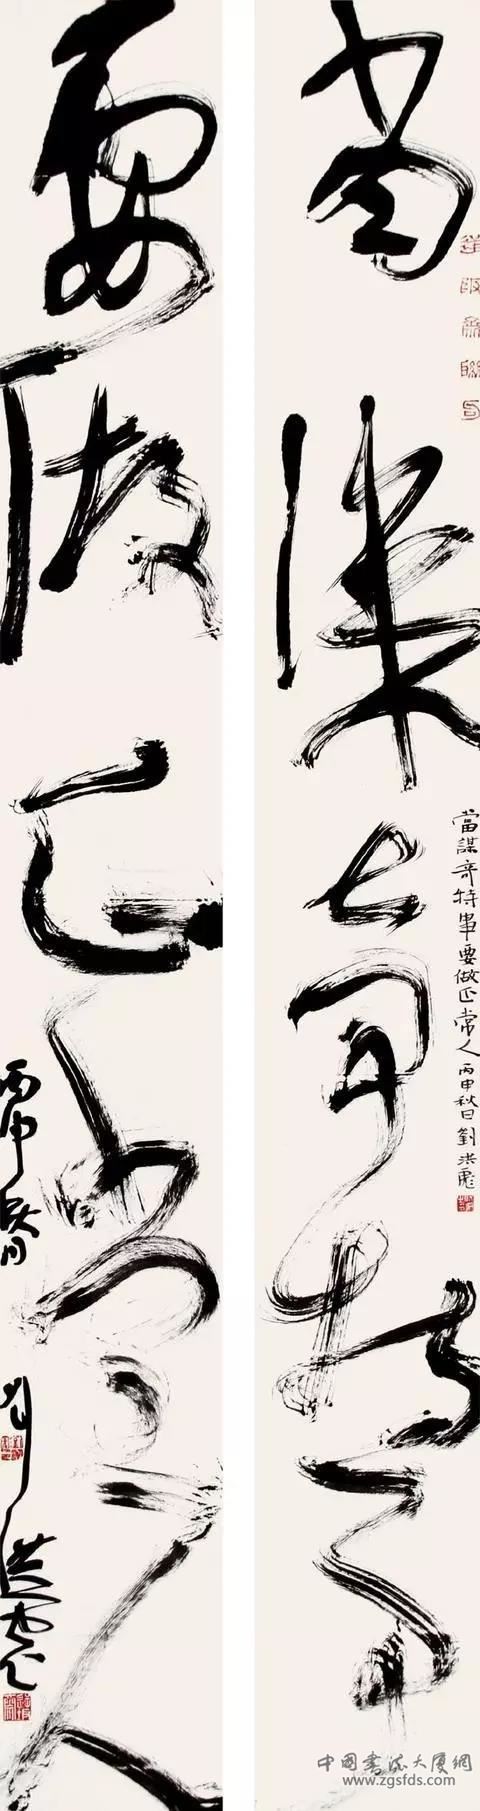 當謀奇特事
當謀奇特事要做正常人丙申秋日劉洪彪
要做正常人
丙申
劉洪彪
中國書法大厦網
www.zgsfds.com